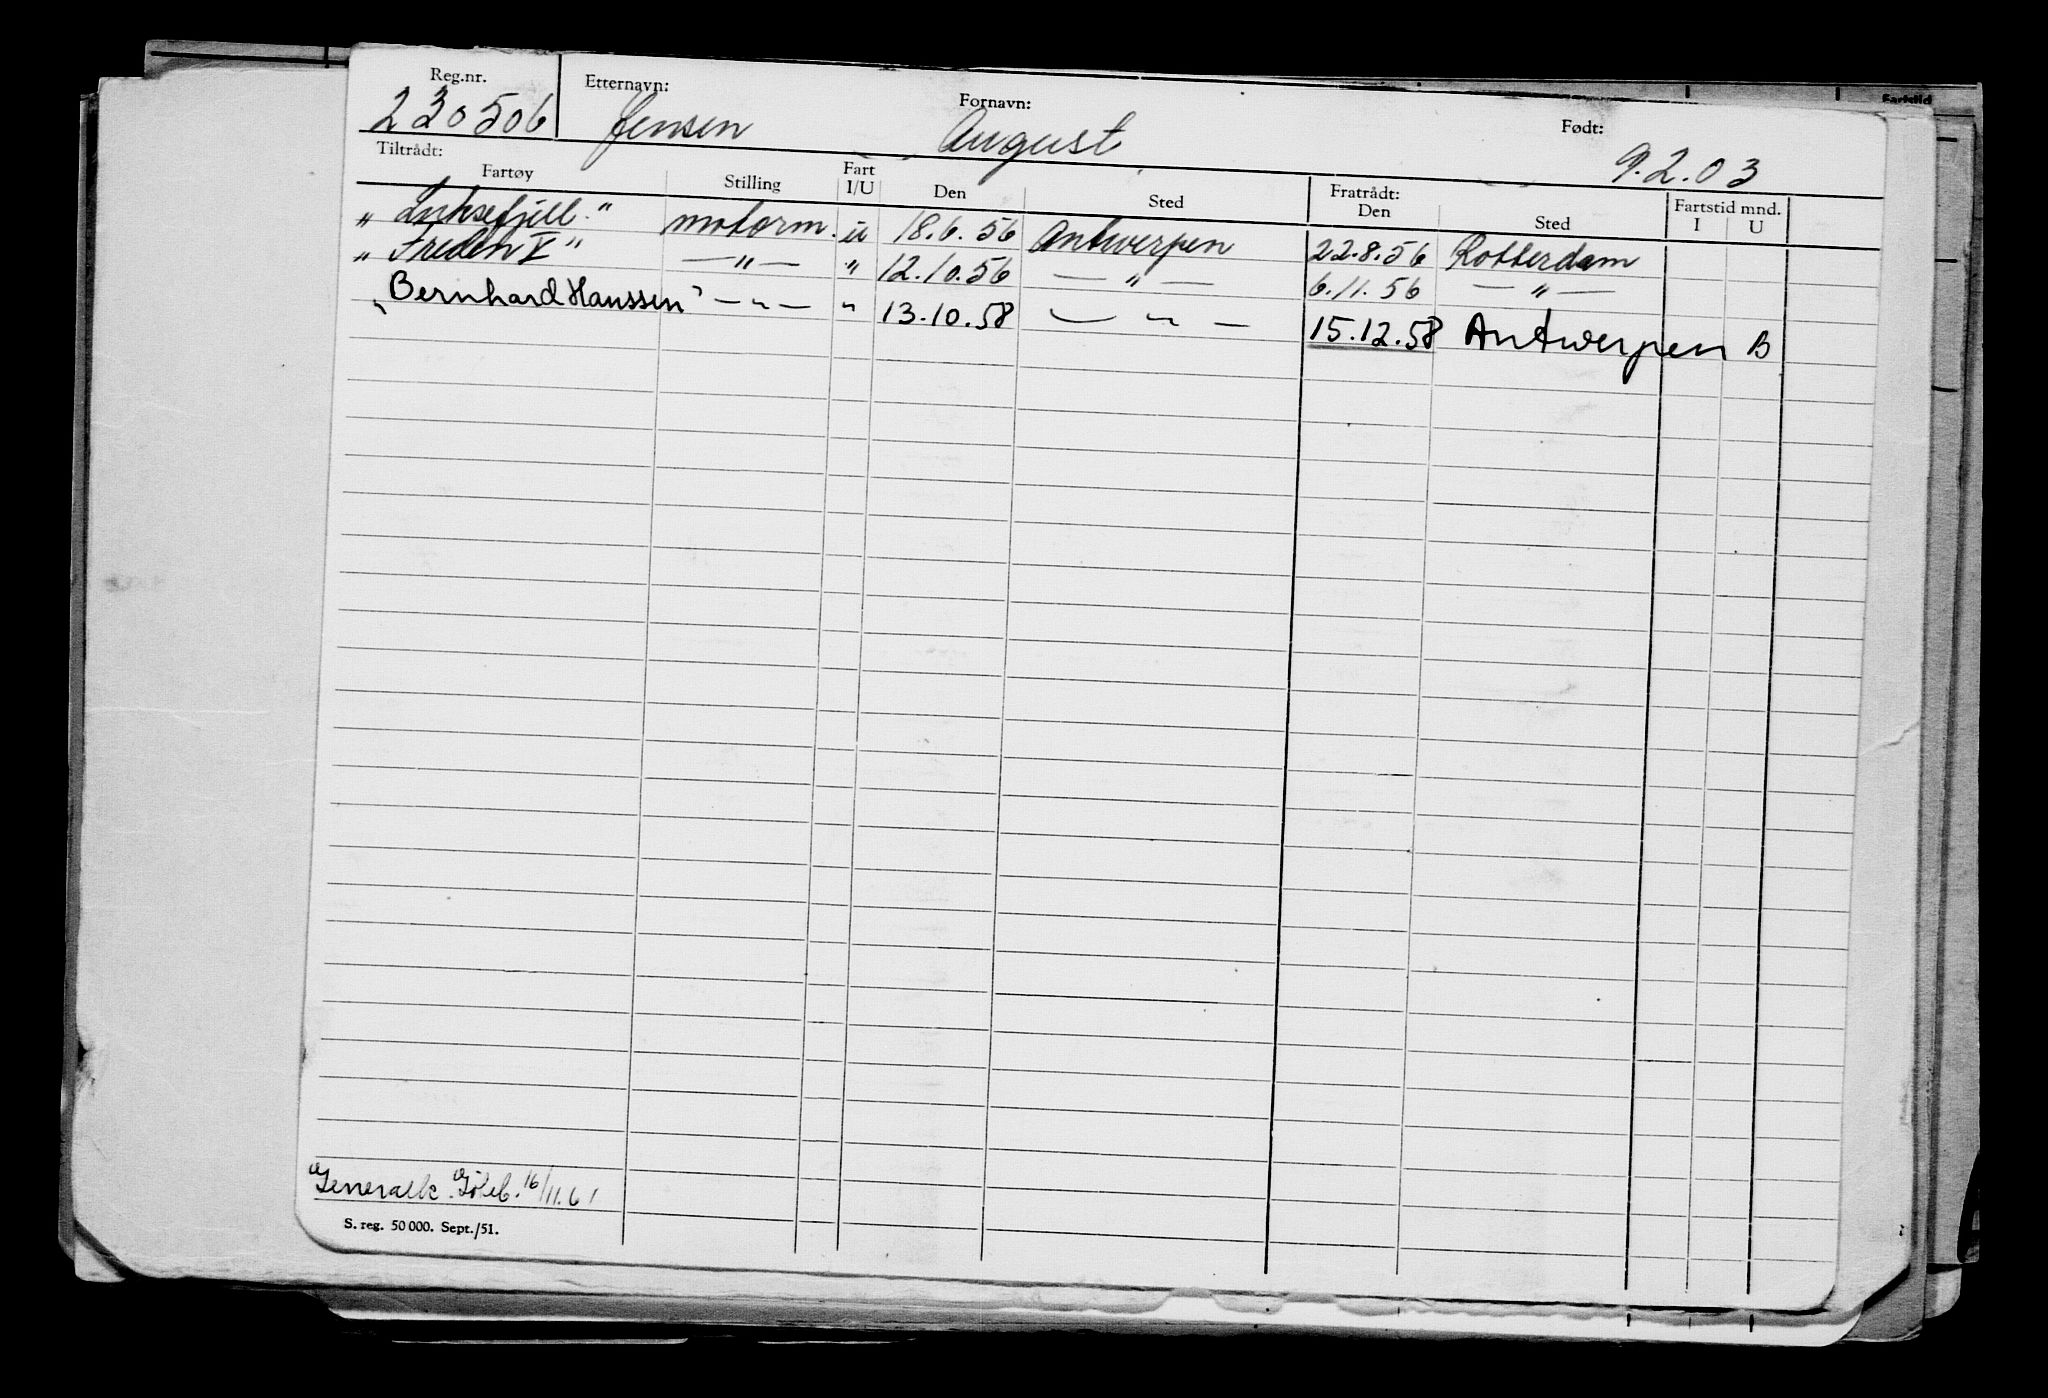 Reg.nr. Etternavn: Fornavn: Født:
230506 Jensen August 9.2.03
Tiltrådt: Fratrådt:
Fartøy Stilling Fart I/U Den Sted Den Sted Fartstid mnd. I U
"Luksefjell." motorm. u 18.6.56 Antwerpen 22.8.56 Rotterdam
"Freden V" — " — " 12.10.56 — " — 6.11.56 — " —
"Bernhard Hanssen" — " — " 13.10.58 — " — 15.12.58 Antwerpen B
Generalk. Göteb. 16/11.61
S. reg. 50 000. Sept./51.
Fartstid